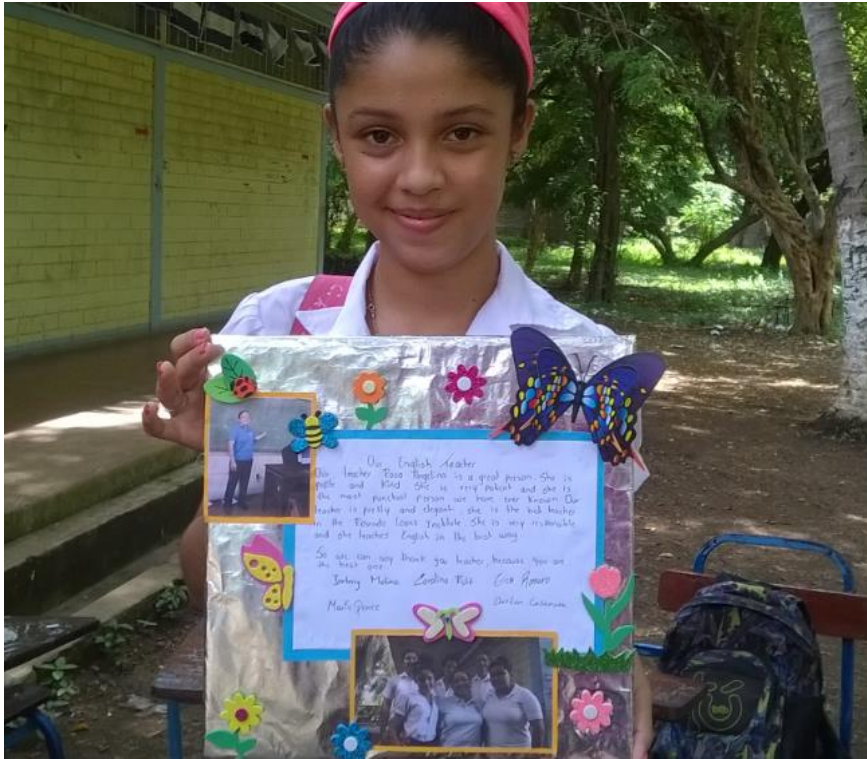 Our English Teacher
Our teacher Rosa Angelina is a great person. She is
polite and kind. She is very patient and she is
the most punctual person we have ever known. Our
teacher is pretty and elegant. she is the best teacher
in the Institute. She is very responsible
and she teaches English in the best way.
So we can say thank you teacher, because you are
the best one.
Molina Carolina Erick